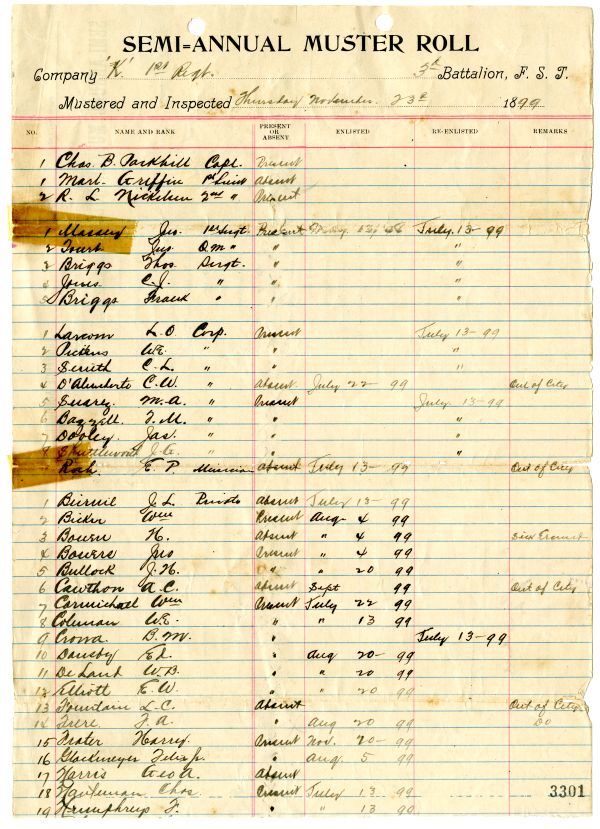 SEMI=ANNUAL MUSTER ROLL
Company 'K' 1st Regt. 3d Battalion, F. S. T.
Mustered and Inspected Thursday November 23d 1899
NO. NAME AND RANK PRESENT OR ABSENT ENLISTED RE-ENLISTED REMARKS
1 Chas. B. Parkhill Capt. Present
1 Marl. Griffin 1st Lieut Absent
2 R. L. Nickelsen 2nd " Present
1 Massey Jno. 1st Sergt. Present July 13-99
2 Jus QM " " "
3 Briggs Thos. Sergt. " "
4 Jones C. J. " " "
5 Briggs Frank " " "
1 Larcom L. O. Corp. Present July 13-99
2 Pickens W.E. " " "
3 Smith C. L. " " "
4 D'Alemberte C. W. " Absent July 22-99 Out of City
5 Suarez M. A. " Present July 13-99
6 Bazzell T. M. " " "
7 Dooley Jas. " " "
8 Shuttleworth J. E. " "
E. P. Musician Absent July 13-99 Out of City
1 J. L. Private Absent July 13-99
2 Bicker Wm Present Aug. 4 99
3 Bowen H. Absent " 4 99
4 Bowers Jno Present " 4 99
5 Bullock J. H. " " 20 99
6 Cawthon A. C. Absent Sept 99 Out of City
7 Carmichael Wm Present July 22 99
8 Coleman W.E. " " 13 99
9 B. M. " July 13-99
10 Dansby Ed. " Aug 20-99
11 DeLand W. B. " " 20 99
12 Elliott E. W. " " 20 99
13 Fountain L. C. Absent Out of City
14 F. A. Aug 20 99 Do
15 Prater Harry Present Nov. 20-99
16 Felix Jr. " Aug. 5 99
17 Harris Geo A. Absent
18 Chas. Present July 13 99
19 Humphreys F. " " 13 99
3301